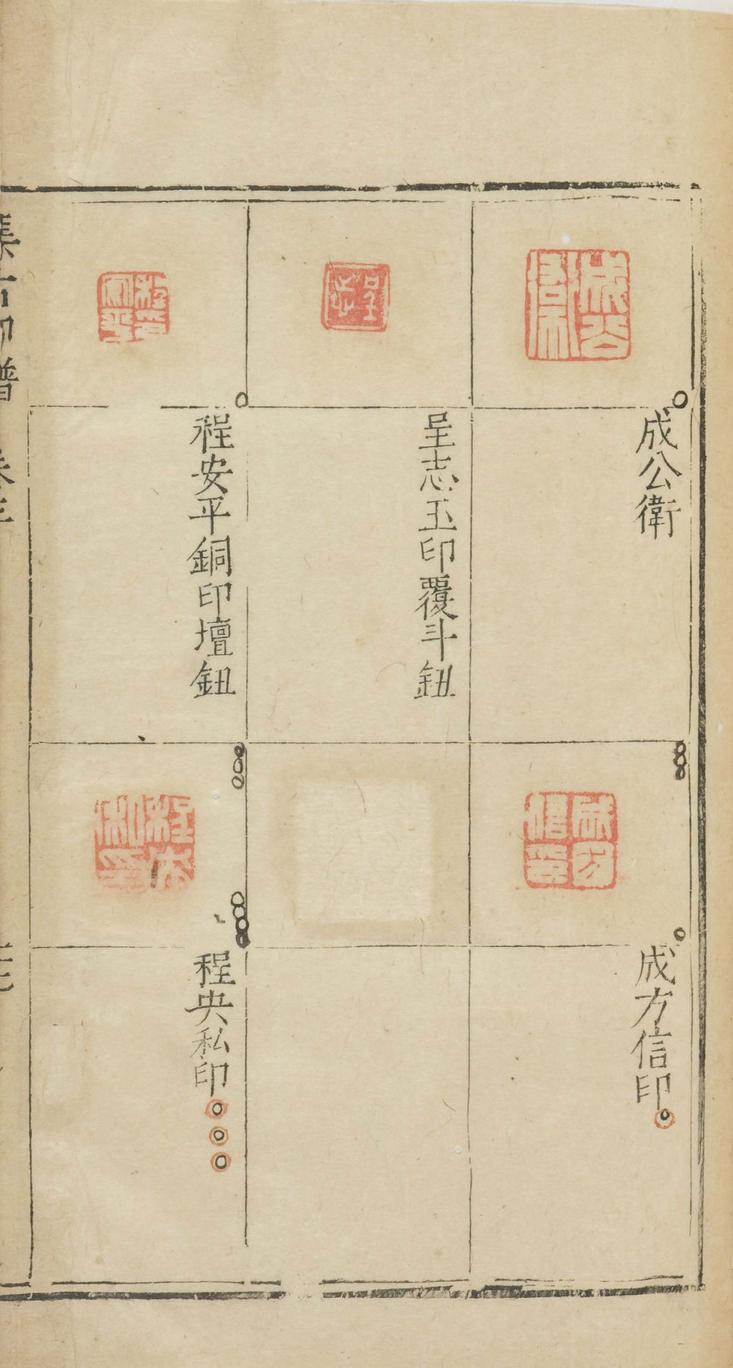 成公衛
成方信印
呈志玉印覆斗鈕
程安平銅印壇鈕
程央私印
集古印譜 卷三